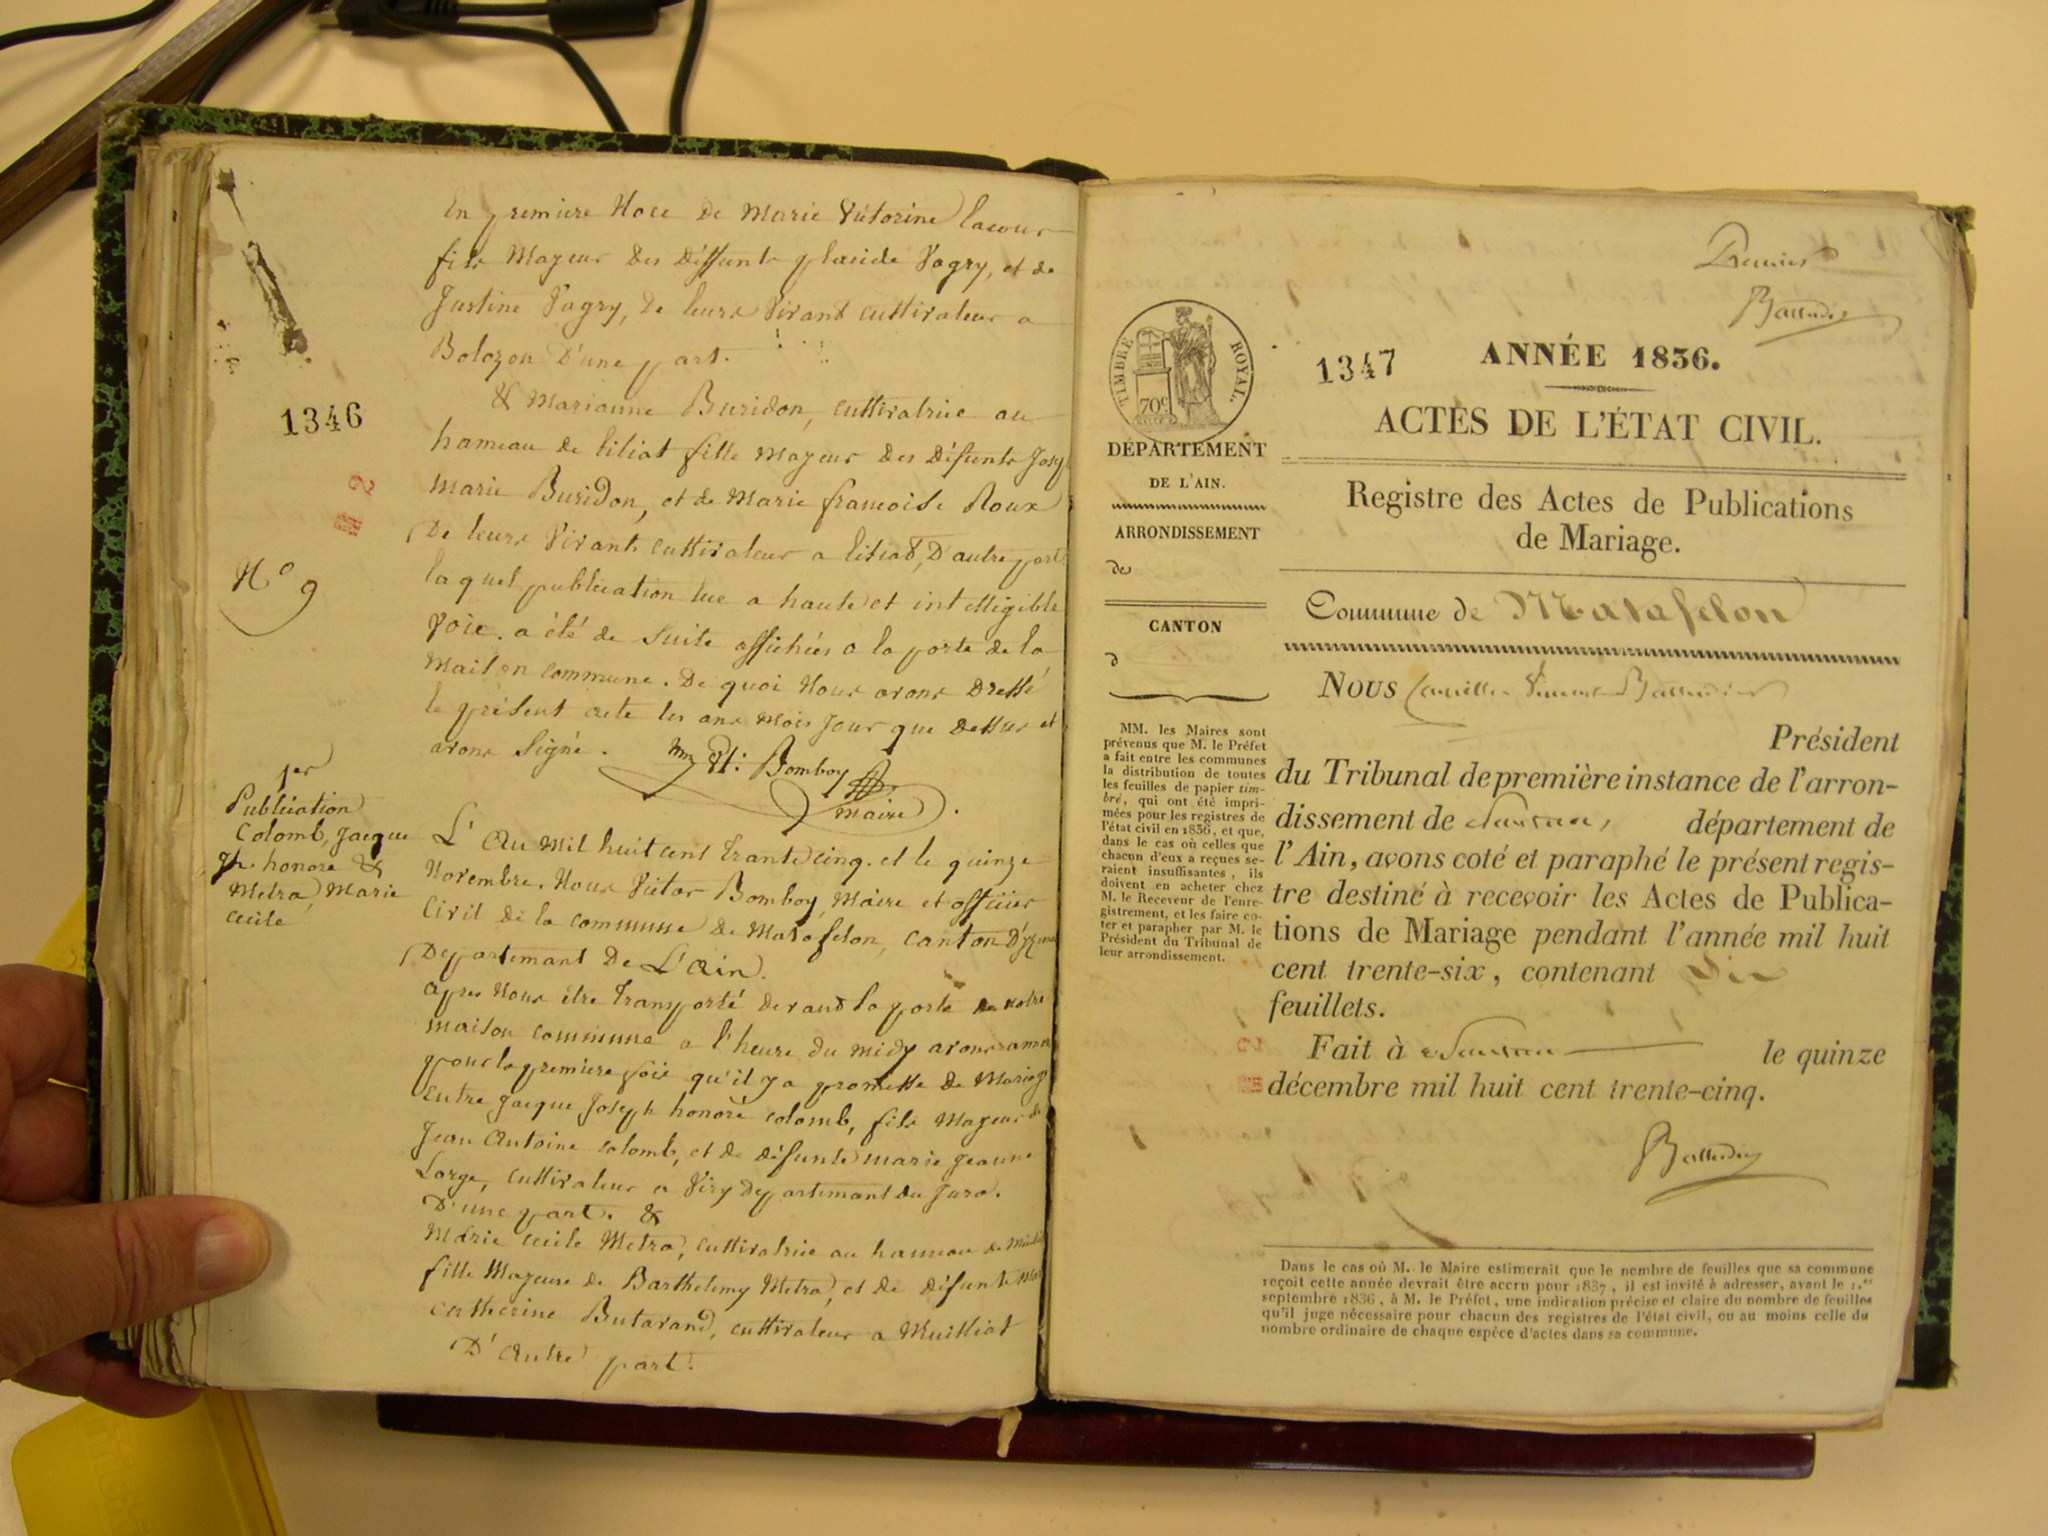 En premiere Noce de Marie Victorine lacour
fils Mayeur des deffunts placide Vagry, et de
Justine Vagry, de leurs Vivant cultivateur a
Bolozon D'une part.
& Marianne Buridon, cultivatrice au
1346
hameau de Ciliat fille Mayeur des défunts
Marie Buridon, et de Marie francoise Roux
De leurs Vivants cultivateur a Ciliat, D'autre part
N° 9
laquel publication lue a haute et inttelligible
Voie. a été de Suite affichées a la porte de la
Maison commune. De quoi Nous avons Dressé
le présent acte les ans Mois Jour que dessus et
avons Signé. Bomboy
maire
1er
Publication
Colomb, Jacque
Jh honoré &
Metra Marie
cecile
L'An Mil huit cent trante cinq. et le quinze
Novembre. Nous Victor Bomboy, Maire et officier
Civil de la commune de Matafelon, canton
Departemant De L'Ain.
apres Nous être transporté devand la porte de notre
maison commune a l'heure du midy avons
pour la premiere foie qu'il y a promesse de Mariage
Entre Jacque Joseph honoré colomb, fils Mayeur de
Jean Antoine colomb, et de défunte marie jeanne
Lorge, cultivateur a Viry Departemant du Jura.
D'une part. &
Marie cecile Metra, cultivatrice au hameau de
fille Mayeure de Barthelemy Metra, et de défunte
catherine Butavand, cultivateur a Muilliat
D'Autre part.
Premier
TIMBRE ROYAL.
70c
1347
ANNÉE 1836.
ACTES DE L'ÉTAT CIVIL.
DÉPARTEMENT
DE L'AIN.
ARRONDISSEMENT
de
CANTON
d
Registre des Actes de Publications
de Mariage.
Commune de Matafelon
MM. les Maires sont
prévenus que M. le Préfet
a fait entre les communes
la distribution de toutes
les feuilles de papier tim-
bré, qui ont été impri-
mées pour les registres de
l'état civil en 1836, et que,
dans le cas où celles que
chacun d'eux a reçues se-
raient insuffisantes, ils
doivent en acheter chez
M. le Receveur de l'enre-
gistrement, et les faire co-
ter et parapher par M. le
Président du Tribunal de
leur arrondissement.
Nous
Président
du Tribunal de première instance de l'arron-
dissement de Nantua, département de
l'Ain, avons coté et paraphé le présent regis-
tre destiné à recevoir les Actes de Publica-
tions de Mariage pendant l'année mil huit
cent trente-six, contenant
feuillets.
Fait à Nantua le quinze
décembre mil huit cent trente-cinq.
Dans le cas où M. le Maire estimerait que le nombre de feuilles que sa commune
reçoit cette année devrait être accru pour 1837, il est invité à adresser, avant le 1.er
septembre 1836, à M. le Préfet, une indication précise et claire du nombre de feuilles
qu'il juge nécessaire pour chacun des registres de l'état civil, ou au moins celle du
nombre ordinaire de chaque espèce d'actes dans sa commune.